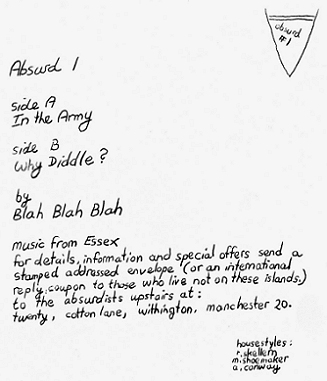 absurd
#1
Absurd 1
side A
In the Army
side B
Why Diddle ?
by
Blah Blah Blah
music from Essex
for details, information and special offers send a
stamped addressed envelope (or an international
reply coupon to those who live not on these islands,)
to the absurdists upstairs at :
twenty, cotton lane, withington, manchester 20.
housestyles :
r. skellern
m. shoemaker
a. conway